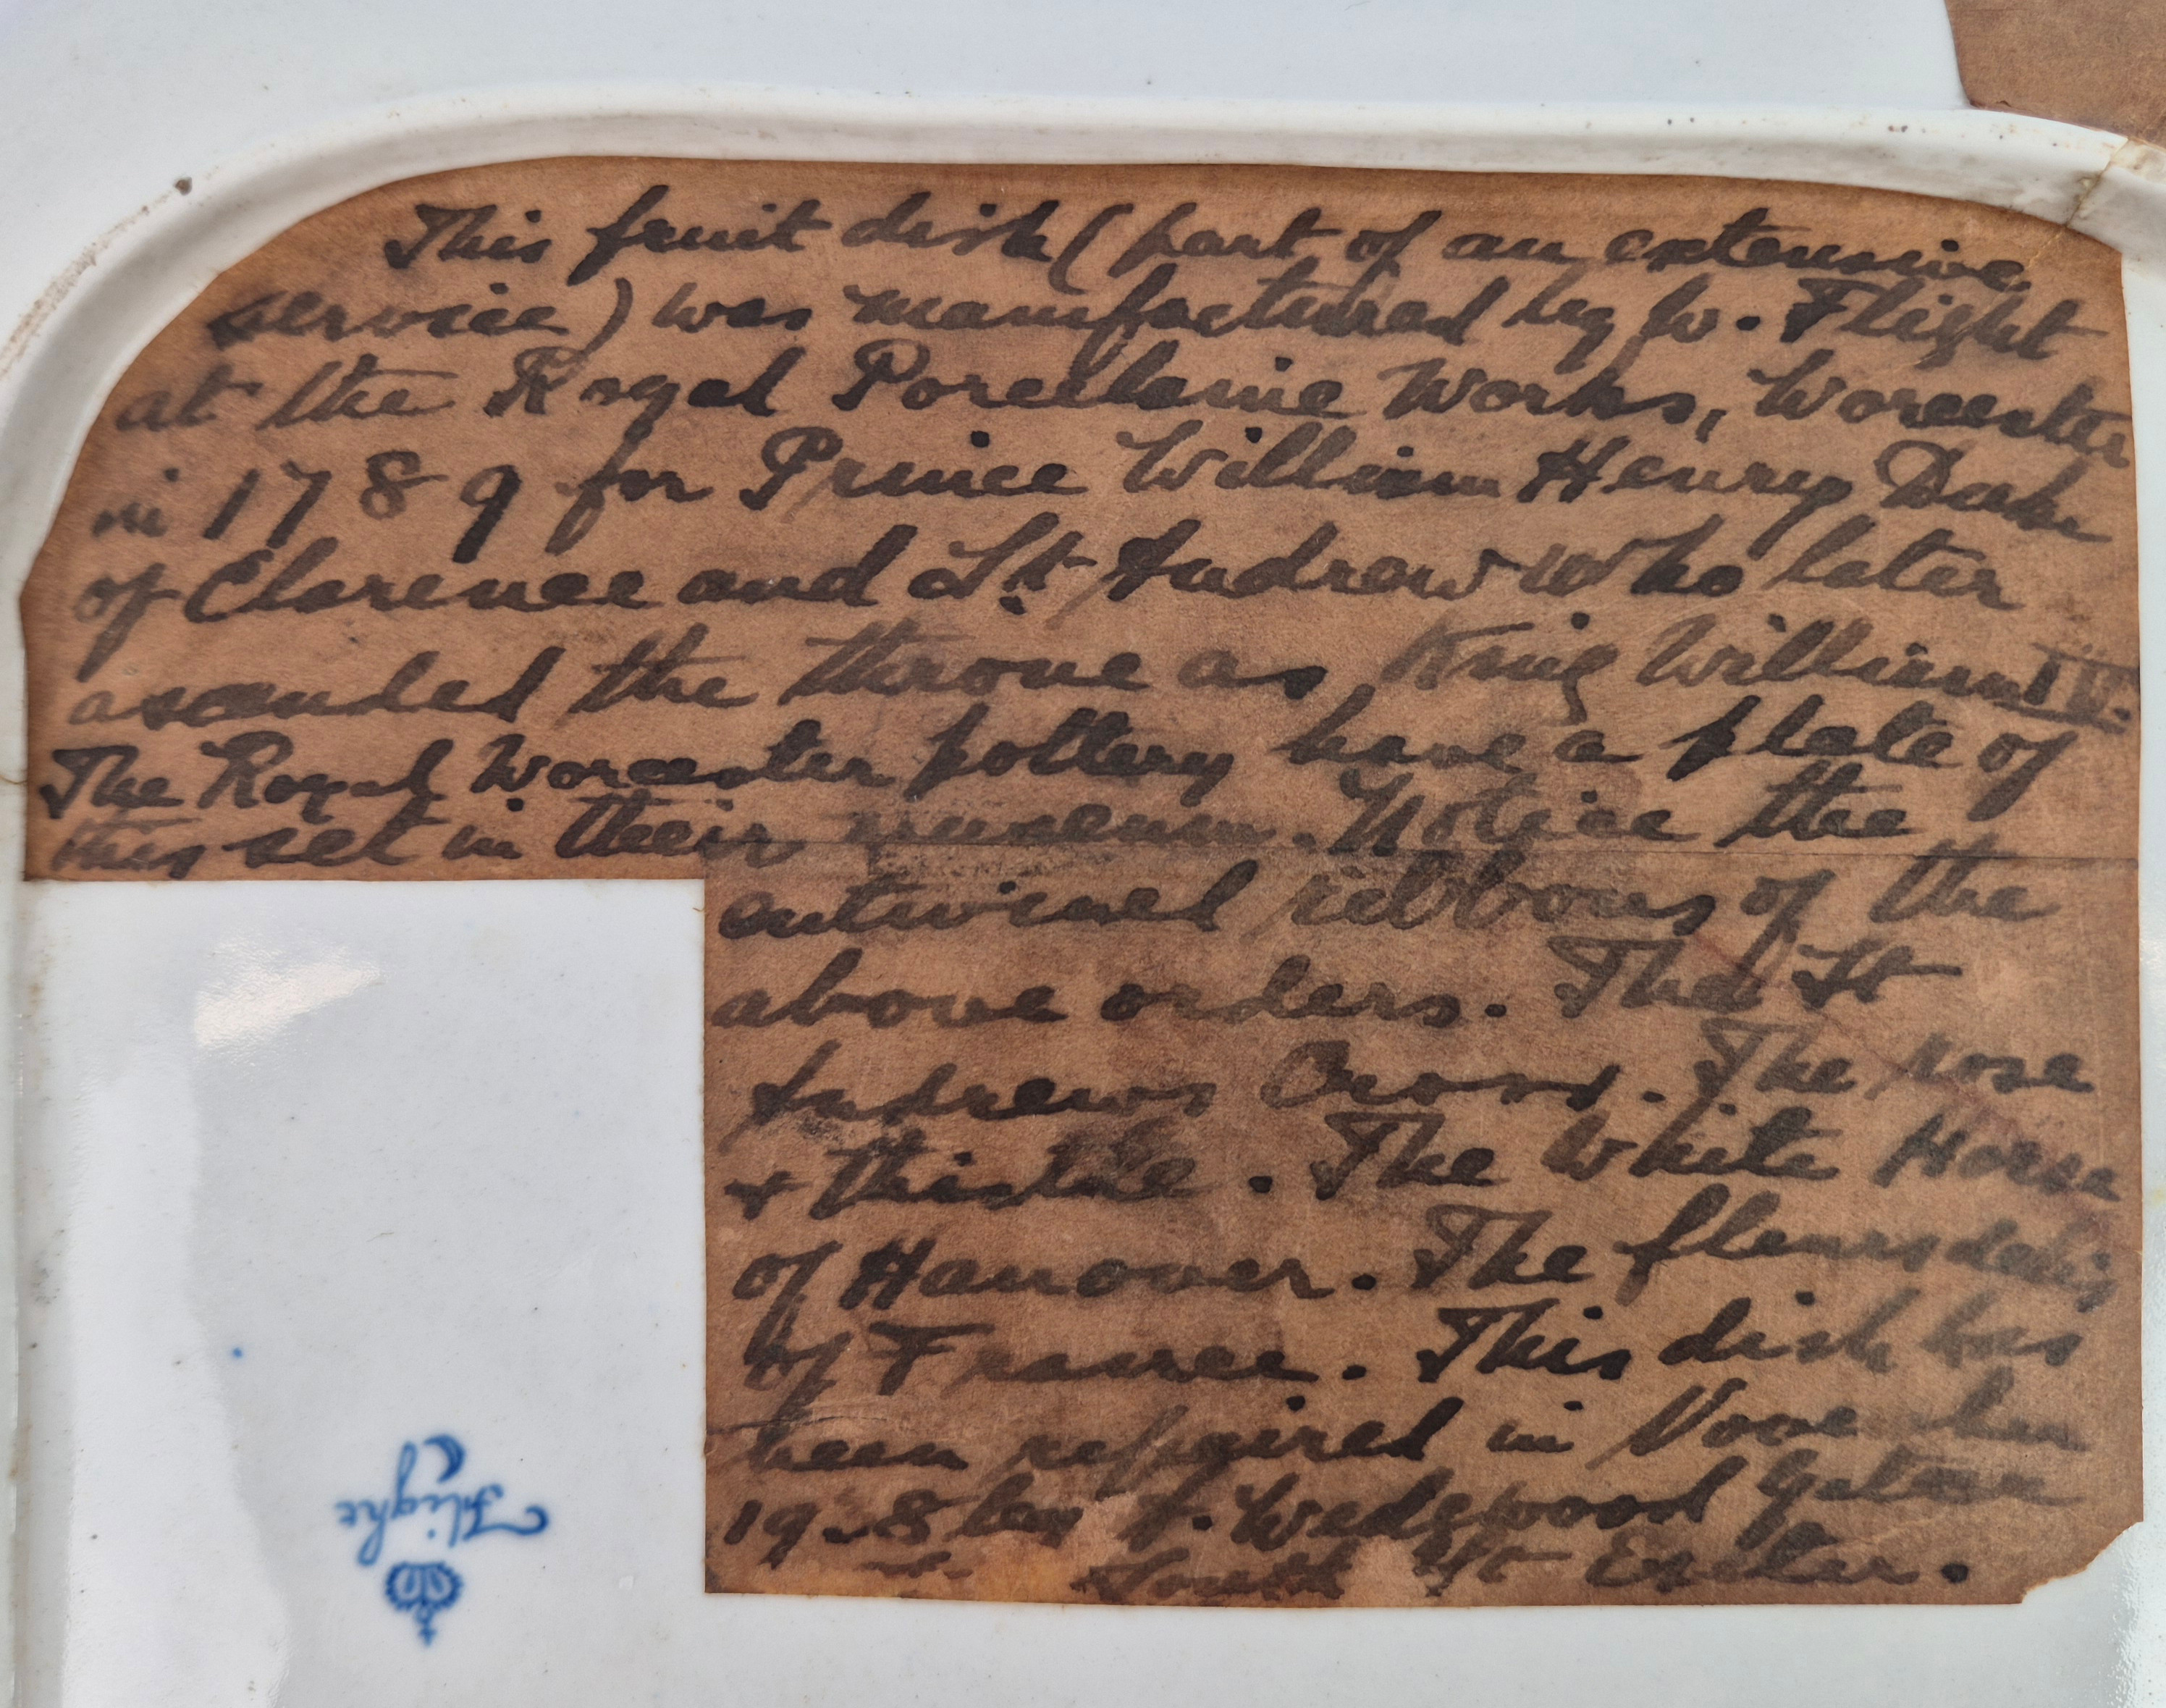 This fruit dish (part of an extensive
service) was manufactured by W. Flight
at the Royal Porcelaine Works, Worcester
in 1789 for Prince William Henry Duke
of Clarence and St. Andrew who later
ascended the throne as King William IV.
The Royal Worcester pottery have a plate of
this set in their museum. Notice the
entwined ribbons of the
above orders. The St
Andrews Cross. The rose
& thistle. The White Horse
of Hanover. The fleurs de lis
of France. This dish has
been repaired in November
by Wedgwood
South St Exeter.
Flight